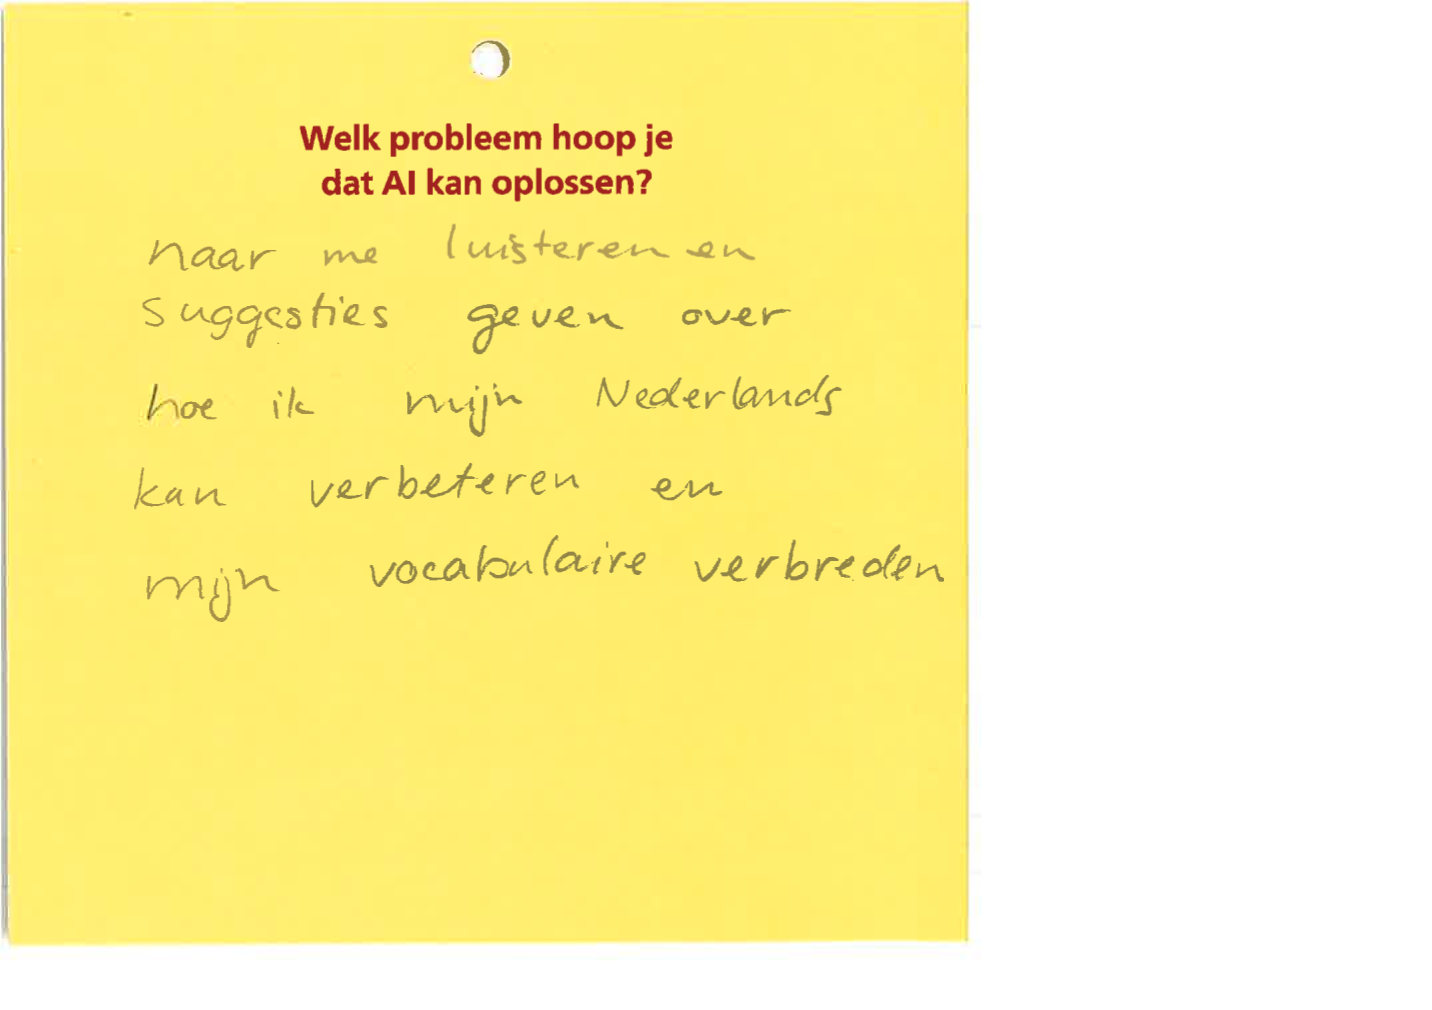 Welk probleem hoop je
dat AI kan oplossen?
naar me luisteren en
suggesties geven over
hoe ik mijn Nederlands
kan verbeteren en
mijn vocabulaire verbreden